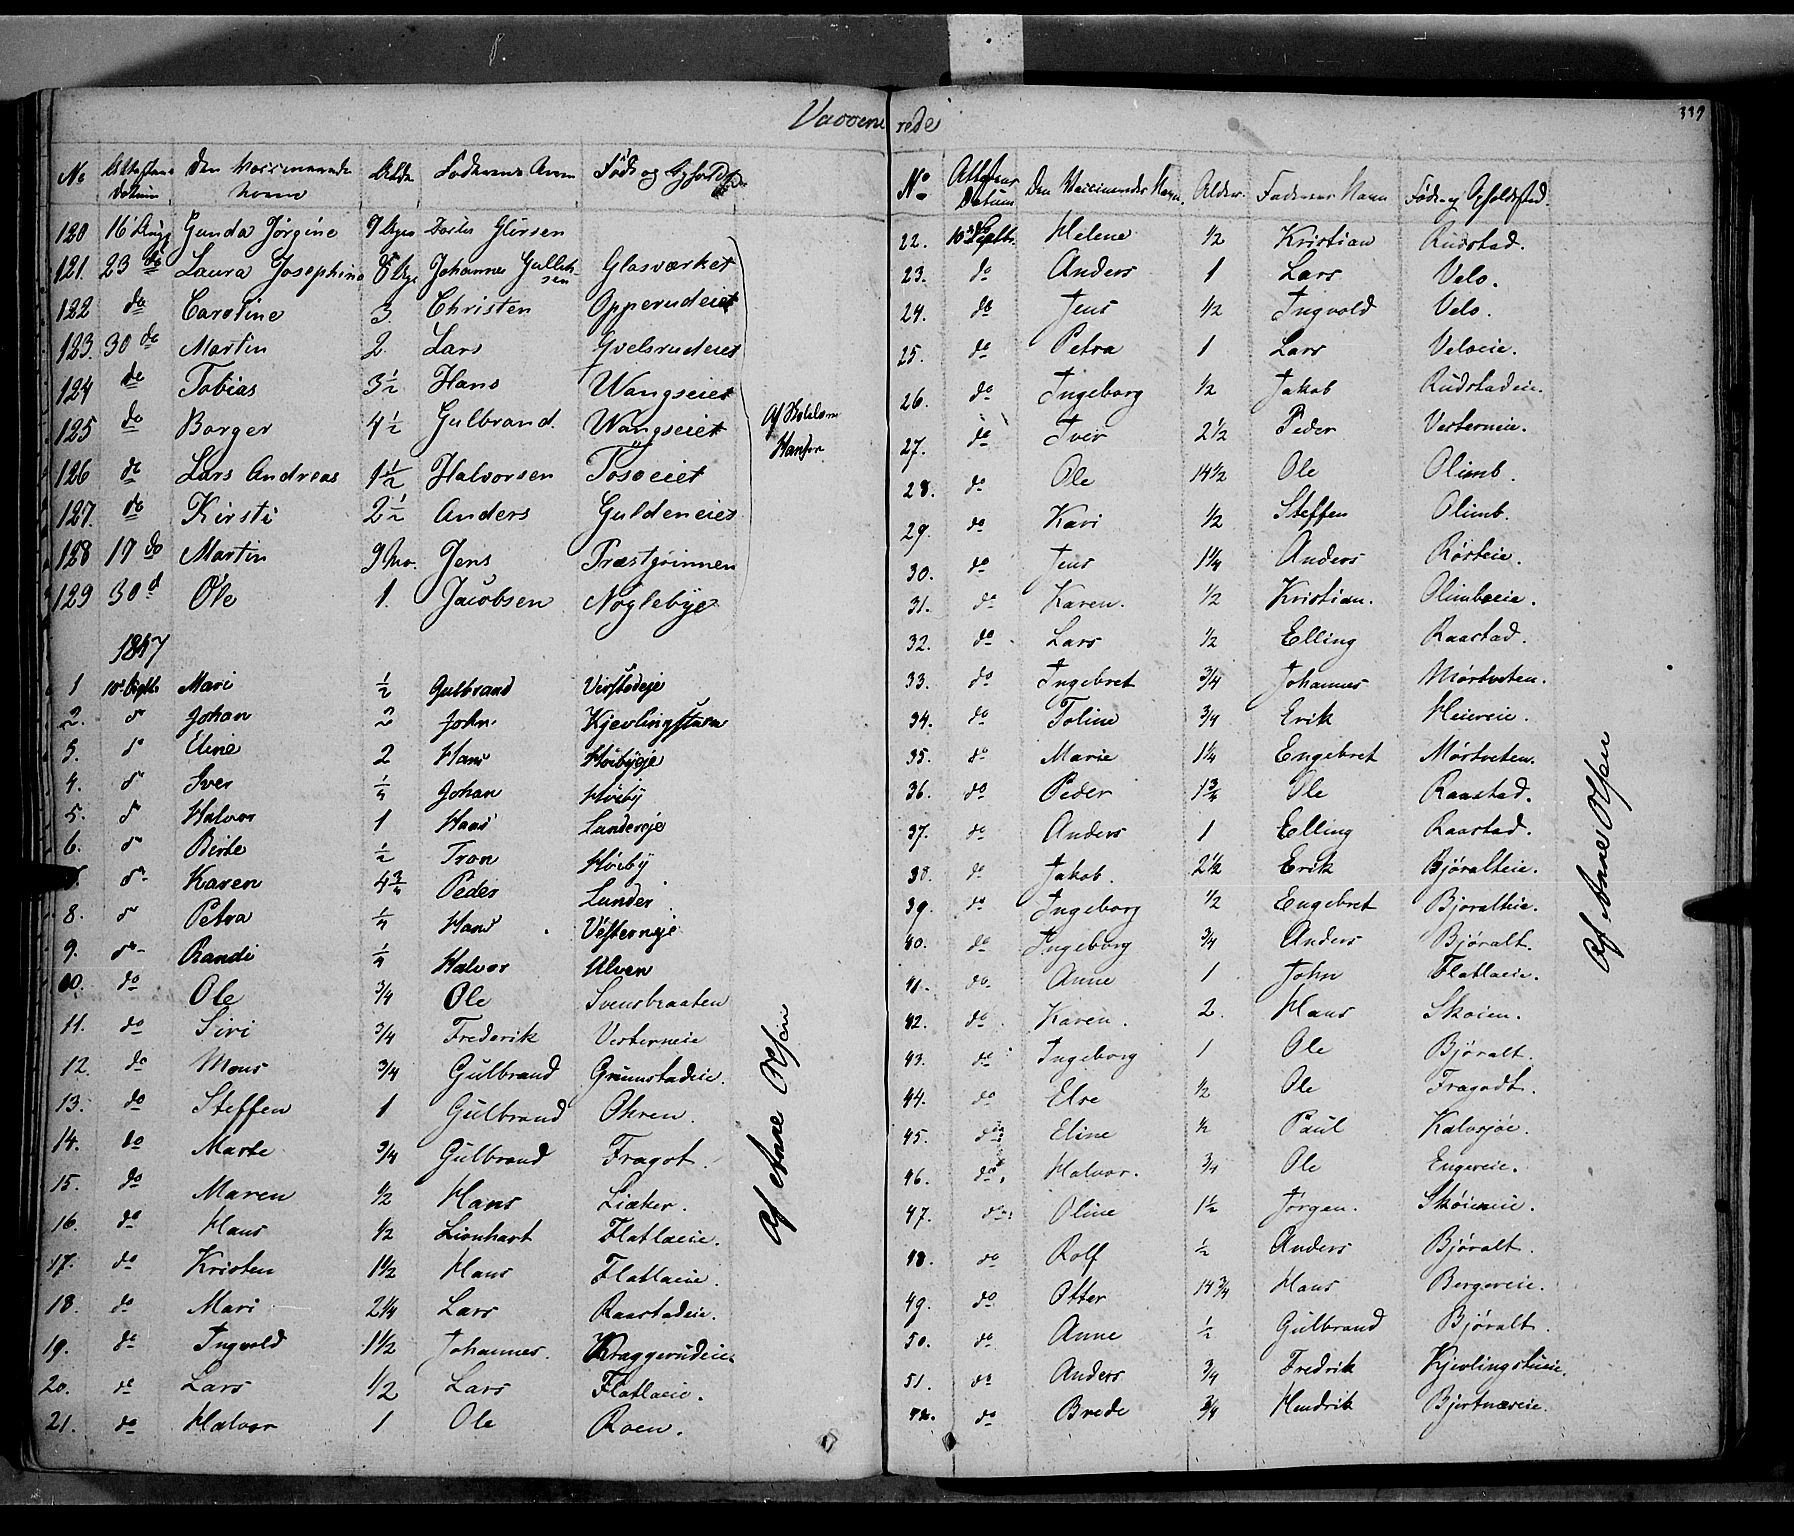 Vaccine rede
339
No Attestens Datum Den Vaccinerede Navn Alder Faderens Navn Føde og Opholdsted
120 16 Aug Gunda Jørgine 9 Dorius Glersen
121. 23 do Laura Josephine 8 Johannes Gulliksen Glasværket
122 do Caroline 3. Christen Opperudeiet
123. 30 do Martin 2. Lars Gvelsrudeiet
124 do Tobias 3½ Hans Wangseiet
125 do Borger 4½ Gulbrand. Wangseiet
126 do Lars Andreas 1½ Halvorsen Tosoeiet
127. do Kirsti 2½ Anders Guldeneiet
128 17 do Martin 9 Mo. Jens Præstgrinnen
129 30 d Ole 1. Jacobsen Nøglebye
Af Hansen
1847
1 10d Septb Mari ½ Gulbrand Virstadeje
2. do Johan 2 John. Kjevlingstuen
3. do Eline 2 Hans Høibyeje
4. do Iver ¼ Johan Høiby
5. do Halvor 1 Haas Lundereje
6. do Birte ½ Tron Høiby
do Karen 4¾ Peder Lunder
8. do Petra ¼ Hans Vesterneje
9. do Randi ¼ Halvor Ulven
10. do Ole ¾ Ole Svensbraaten
11. do Siri ¾ Frederik Vesterneie
12. do Mons ¾ Gulbrand Grumstadeie.
13. do Steffen 1 Gulbrand Øhren.
14. do Marte ¾ Gulbrand Fragot.
15. do Maren ½ Hans Liaker.
16. do Hans ½ Lionhart Flatlaeie.
17. do Kristen 1½ Hans Flatlaeie.
18. do Mari 2¼ Lars Raastadeie.
19. do Ingvold 1½ Johannes. Kraggerudeie.
20. do Lars ½ Lars Flatlaeie.
21. do Halvor 1 Ole Roen.
Af Anne Olsen
No Attestens Datum Den Vaccinerendes Navn. Alder. Faderens Navn Føde og Opholdsted.
22. 10d Septb. Helene ½ Kristian Rudstad.
23. do Anders 1 Lars Velo.
24. do Jens ½ Ingvold Velo.
25. do Petra 1 Lars Veloeie.
26. do Ingeborg ½ Jakob Rudstadeie.
27. do Iver 2½ Peder Vesterneie.
28. do Ole 14½ Ole Olimb.
29. do Kari ½ Steffen Olimb.
30. do Jens 1¼ Anders Røsteie.
31. do Karen. ½ Kristian. Olimbseie.
32. do Lars ½ Elling Raastad.
33. do Ingebret ¾ Johannes Mørtveten.
34. do Toline ¾ Erik Heiereie.
35. do Marie 1¼ Engebret Mørtveten.
36. do Peder 1¾ Ole Raastad.
37. do Anders 1 Elling Raastad.
38. do Jakob. 2½ Erik Bjøralteie.
39. do Ingeborg ½ Engebret Bjøralteie.
40. do Ingeborg ¾ Anders Bjøralt.
41. do Anne 1 John Flatlaeie.
42. do Karen. 2. Hans Skøien.
43. do Ingeborg 1 Ole Bjøralt.
44. do Else ½ Ole Fragodt.
45. do Eline ½ Paul Kalvsjøe.
46. do Halvor. ¾ Ole Engereie.
47. do Oline 1½ Jørgen. Skøieneie.
48. do Rolf ½ Anders Bjøralt.
49. do Otter 14¾ Hans Bergereie.
50. do Anne ½ Gulbrand Bjøralt.
51. do Anders ¾ Fredrik Kjevlingstueie.
52. do Brede ¾ Hendrik Bjertnæseie.
Af Anne Olsen